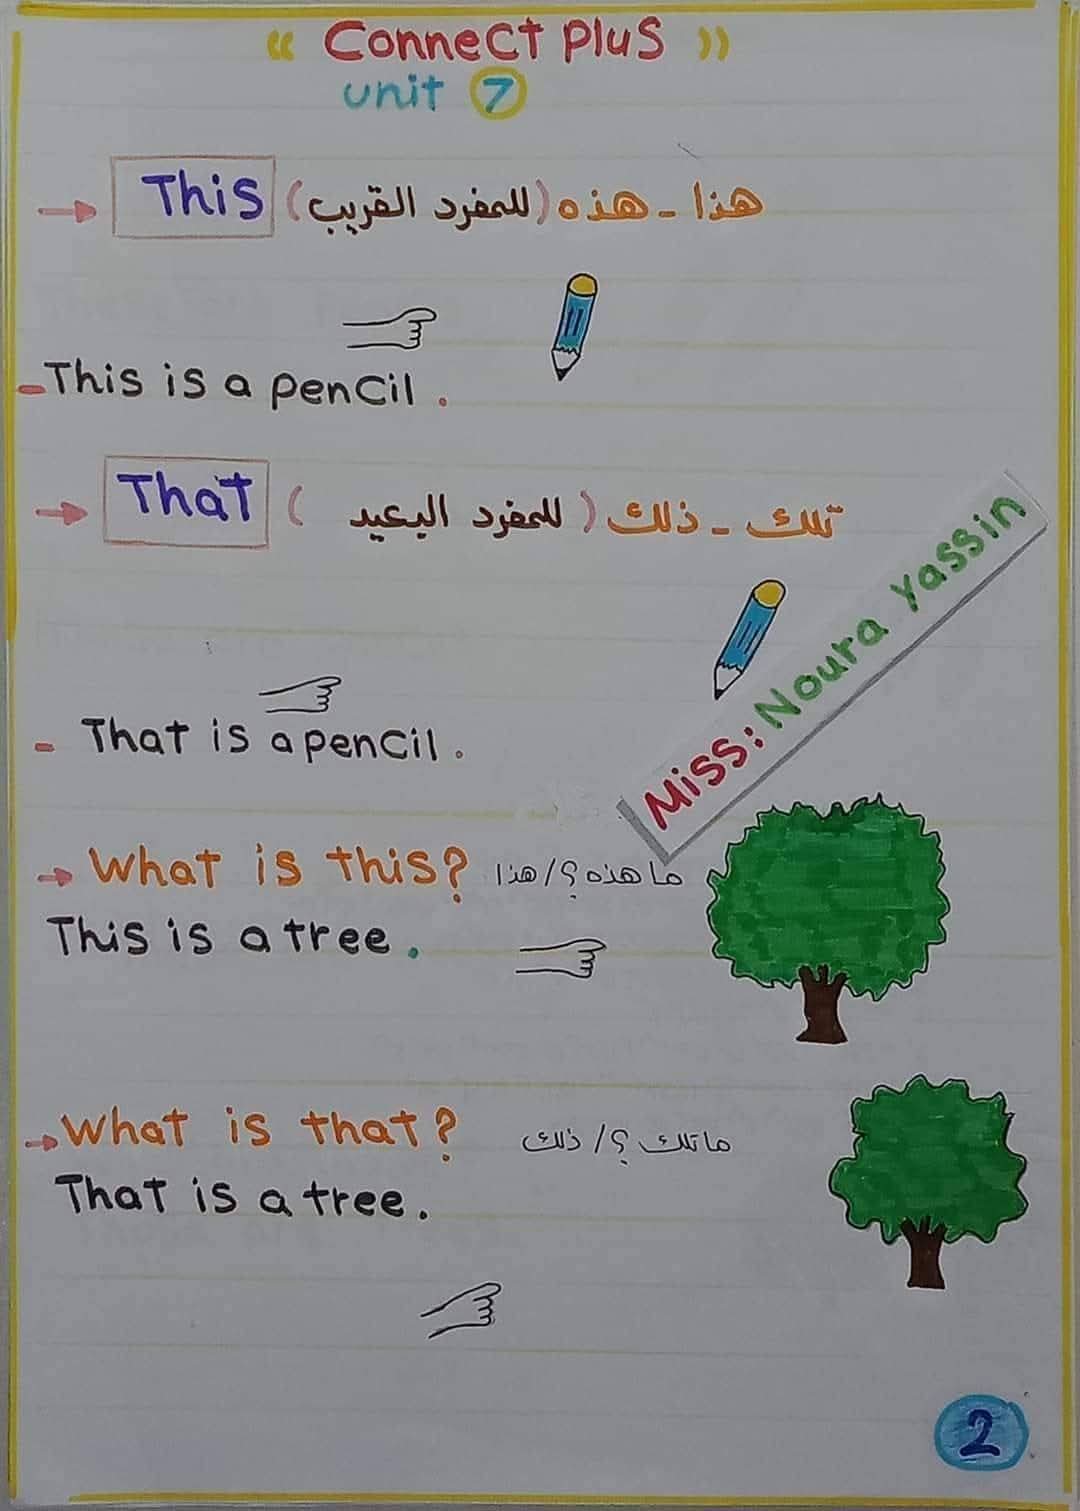 « Connect Plus »
unit 7
→ This (للمفرد القريب) هذا - هذه
- This is a pencil.
→ That (للمفرد البعيد) تلك - ذلك
Miss: Noura Yassin
- That is a pencil.
→ What is this? ما هذه؟/هذا
This is a tree.
→ What is that? ما تلك؟/ذلك
That is a tree.
2